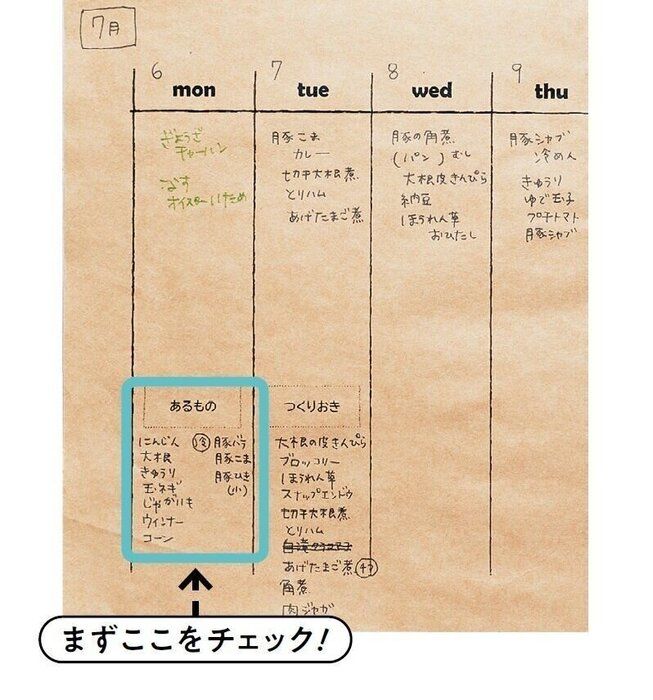 7月
6
mon
ぎょうざ
チャーハン
なす
オイスターいため
7
tue
豚こま
カレー
切干大根煮
とりハム
あげたまご煮
8
wed
豚の角煮
(パン)むし
大根皮きんぴら
納豆
ほうれん草
おひたし
9
thu
豚シャブ
冷めん
きゅうり
ゆで玉子
プチトマト
豚シャブ
あるもの
にんじん
大根
きゅうり
玉ネギ
じゃがいも
ウィンナー
コーン
冷 豚バラ
豚こま
豚ひき
(小)
つくりおき
大根の皮きんぴら
ブロッコリー
ほうれん草
スナップエンドウ
切干大根煮
とりハム
あげたまご煮
角煮
肉ジャガ
まずここをチェック!